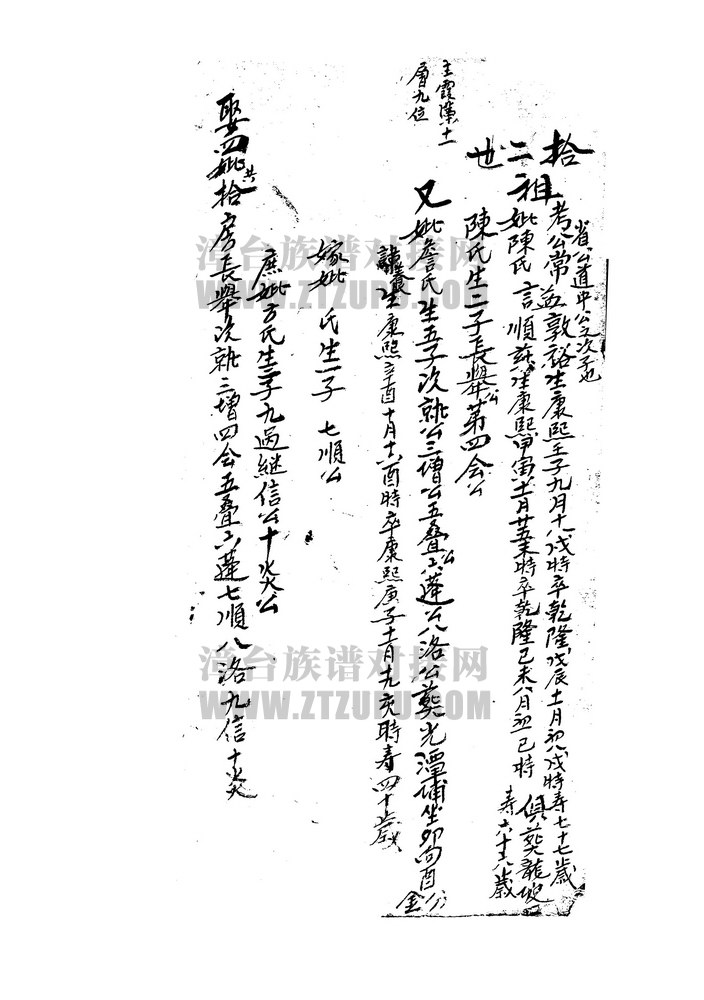 拾二世
祖
省公道中公之次子也
考公常益敦裕生康熙壬子九月十八戌時卒乾隆戊辰十一月初八戌時寿七十七歲
妣陳氏言順兹生康熙甲寅十一月廿五未時卒乾隆己未八月初二巳時
俱葬龍坡
寿六十六歲
陳氏生二子長舉公第四会公
又妣詹氏生五子次孰公三增公五叠公六蓮公八洛公葬光潭埔坐卯向酉分金
生康熙辛酉十月十六酉時卒康熙庚子十一月十九亥時寿四十歲
嫁妣 氏生一子 七順公
庶妣方氏生二子九過継信公十炎公
娶四妣共拾房長舉次孰三增四会五叠六蓮七順八洛九信十炎
主霞漳十一
層九位
漳台族谱对接网
WWW.ZTZUPU.COM
漳台族谱对接网
WWW.ZTZUPU.COM